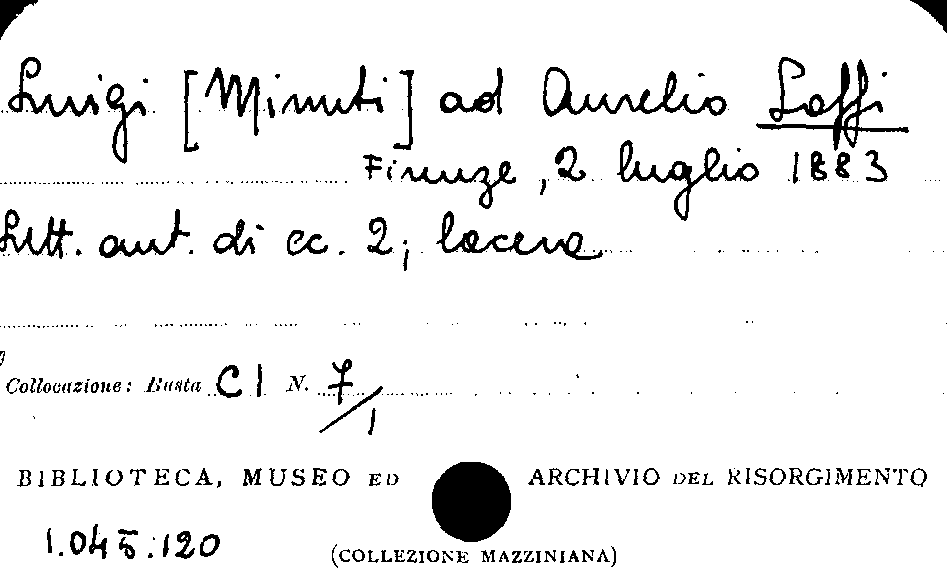 Luigi [Minuti] ad Aurelio Saffi
Firenze, 2 luglio 1883
Lett. aut. di cc. 2; lacera
Collocazione: Busta CI N. 7/1
BIBLIOTECA, MUSEO ED ARCHIVIO DEL RISORGIMENTO
1.045.120
(COLLEZIONE MAZZINIANA)